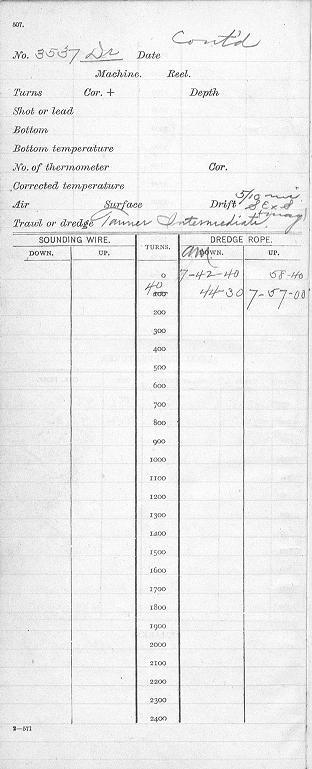 507.
Cont'd
No. 3537 Dr Date
Machine. Reel.
Turns Cor. + Depth
Shot or lead
Bottom
Bottom temperature
No. of thermometer Cor.
Corrected temperature
5/10 mi.
Air Surface Drift S E x S
mag
Trawl or dredge Tanner Intermediate.
SOUNDING WIRE. TURNS. DREDGE ROPE.
DOWN. UP. am DOWN. UP.
0 7-42-40 58-40
40
100 44-30 7-57-00
200
300
400
500
600
700
800
900
1000
1100
1200
1300
1400
1500
1600
1700
1800
1900
2000
2100
2200
2300
2400
2—571